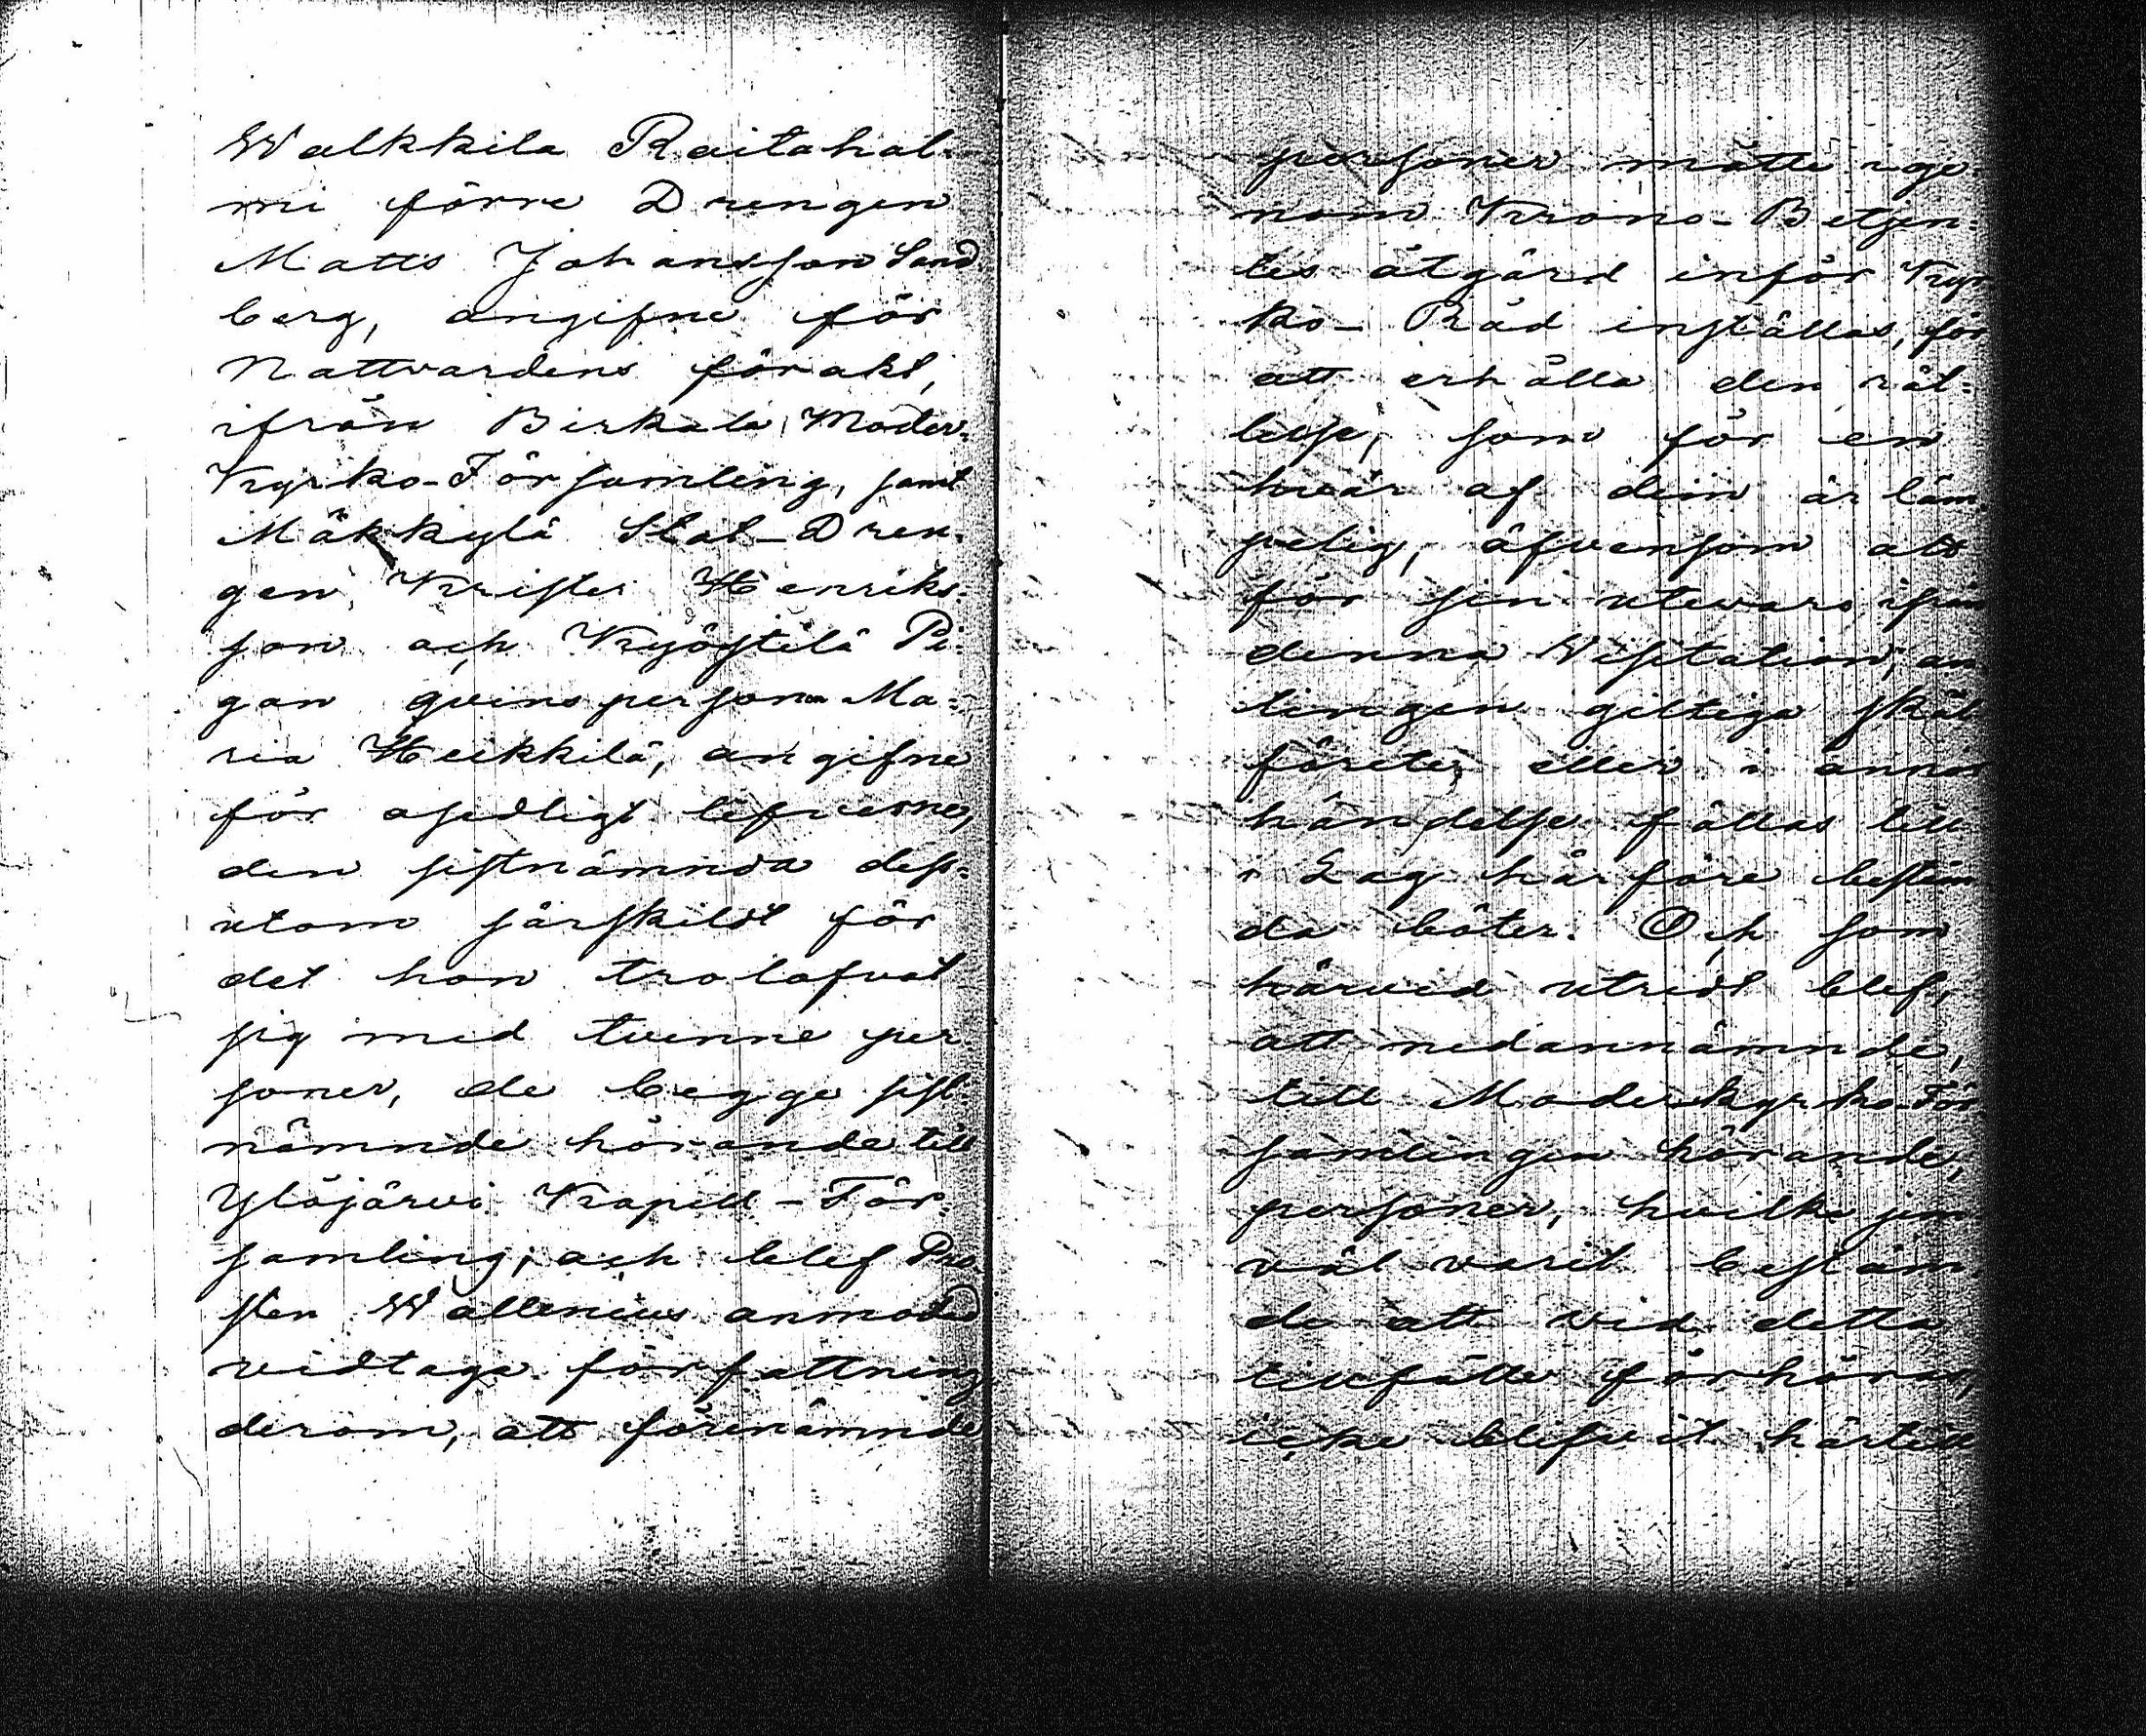 Walkkila Raitahal-
mi förre Drengen
Matts Johansson Sand
berg, angifne för
Nattvardens förakt,
ifrån Birkala Moder-
Kyrko-Församling, samt
Mäkkylä Stat-Dren-
gen Krister Henriks-
son och Kyöstilä Pi-
gan qvinsperson Ma-
ria Heikkilä, angifne
för osedligt lefverne,
den sistnämnda dess-
utom särskildt för
det hon trolofvat
sig med tvenne per
soner, de begge sist-
nämnde hörande till
Ylöjärvi Kapell-För-
samling; och blef Pro
sten Wallenius anmodad
vidtaga författning
derom, att förenämnde
personer måtte ige-
nom Krono-Betjen-
tes åtgärd inför Kyr
ko-Råd inställas, för
att erhålla den rät-
telse, som för en
hvar af dem är läm
pelig, äfvensom att
för sin utevaro ifrån
denna Visitation, an
tingen giltiga skäl
förete, eller i annor
händelse fällas till
i Lag härföre bestäm
da böter. Och som
härvid utredt blef,
att nedannämnde,
till Moderkyrko-För
samlingen hörande,
personer, hvilke jem
väl varit bestäm-
de att vid detta
tillfälle förhöras,
icke blifvit härtill